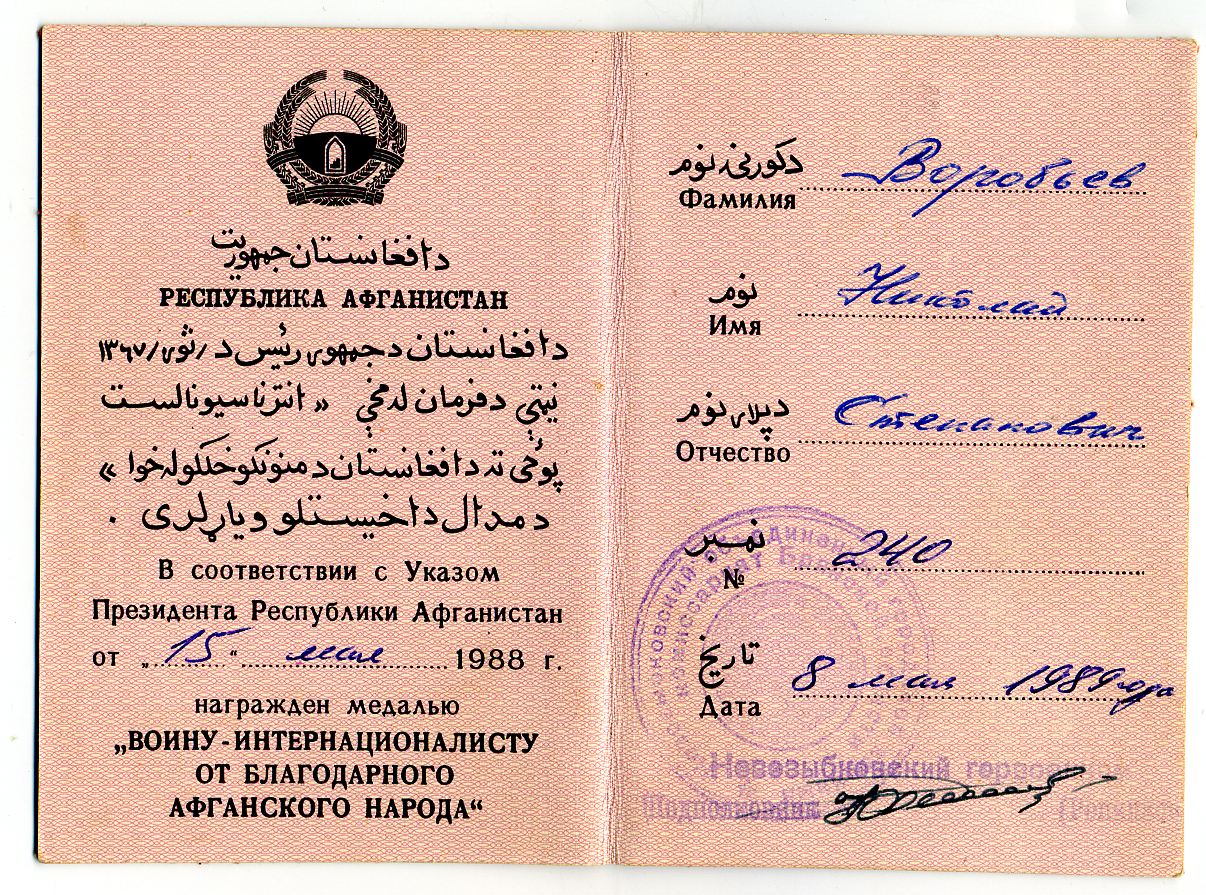 دافغانستان جمهوریت
РЕСПУБЛИКА АФГАНИСТАН
دافغانستان دجمهوری رئیس د / ثور / ۱۳۶۷
نیټې دفرمان له مخې « انترناسیونالست
پوځی ته دافغانستان دمنونکو خلکو له خوا »
دمدال داخیستلو ویاړ لری .
В соответствии с Указом
Президента Республики Афганистан
от „15“ мая 1988 г.
награжден медалью
„ВОИНУ-ИНТЕРНАЦИОНАЛИСТУ
ОТ БЛАГОДАРНОГО
АФГАНСКОГО НАРОДА“
دکورنی نوم
Фамилия Воробьев
نوم
Имя Николай
دپلار نوم
Отчество Степанович
نمبر
№ 240
تاریخ
Дата 8 мая 1989 года
Новозыбковский
Подполковник